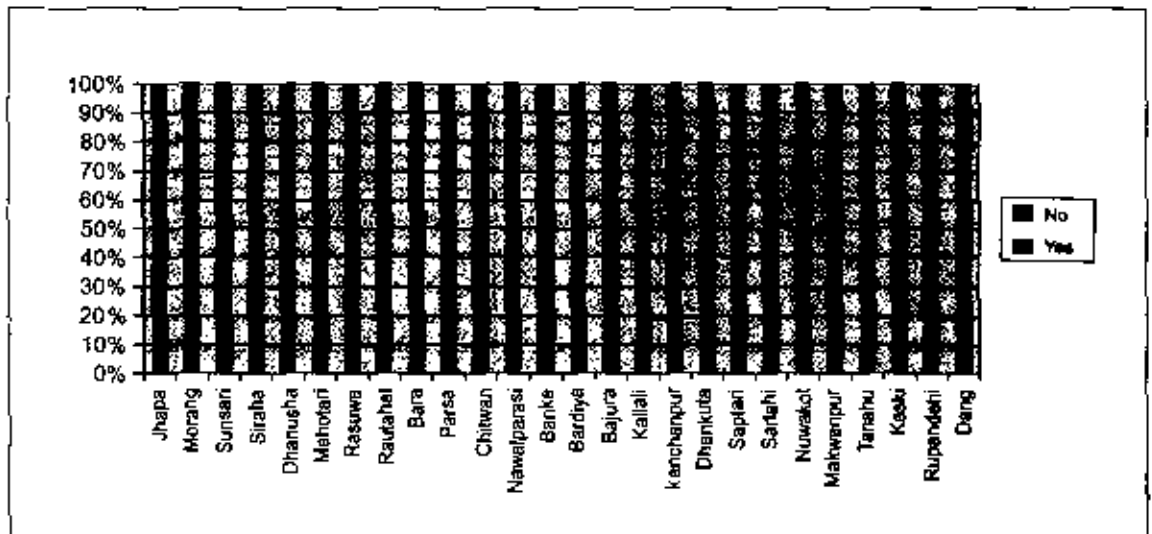 100%
90%
80%
70%
60%
50%
40%
30%
20%
10%
0%
Jhapa
Morang
Sunsari
Siraha
Dhanusha
Mahotari
Rasuwa
Rautahat
Bara
Parsa
Chitwan
Nawalparasi
Banke
Bardiya
Bajura
Kailali
kanchanpur
Dhankuta
Saptari
Sarlahi
Nuwakot
Makwanpur
Tanahu
Kaski
Rupandehi
Dang
No
Yes